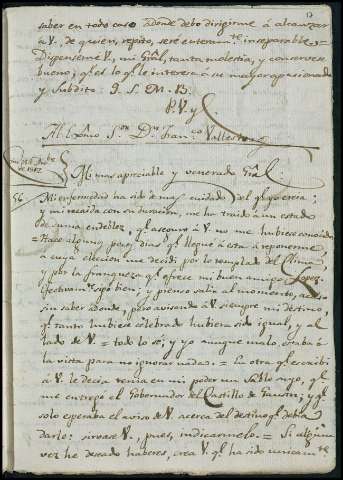 saber en todo caso adonde debo dirigirme á alcanzar
á V. de quien, repito, seré enteram.te inseparable.=
Dispenseme V., mi Gral, tanta molestia, y conservese
bueno; q.e es lo q.e le interesa á su mayor apasionado
y subdito: Q. S. M. B.
P. V. y
Al Exmo S.or D.n Fran.co Vallesteros
de 1812
Mi mas apreciable y venerado Gral:
56 Mi enfermedad ha sido de mas cuidado del q.e yo creia;
y mi recaida con su duracion, me ha traido a un estado
de suma endeblez, q.e aseguro á V. no me hubiera conocido
= Hace algunos dias q.e llegué á esta á reponerme,
á cuya eleccion me decidi por lo templado del Clima,
y por la franqueza q.e ofrece mi buen amigo Lopez
y pienso salir al momento,
sin saber adonde, pero avisando á V. siempre mi destino,
q.e tanto hubiera celebrado hubiera sido igual, y al
lado de V. = todo lo sé; y yo aunque malo estaba á
la vista para no ignorar nada. = En otra q.e escribi
á V. le decia tenia en mi poder un Sable suyo, q.e
me entregó el Gobernador del Castillo de Gausin; y q.e
solo esperaba el aviso de V. acerca del destino q.e debia
darlo: sirvase V., pues, indicarmelo. = Si alguna
vez he deseado haberes, crea V. q.e ha sido unicam.te